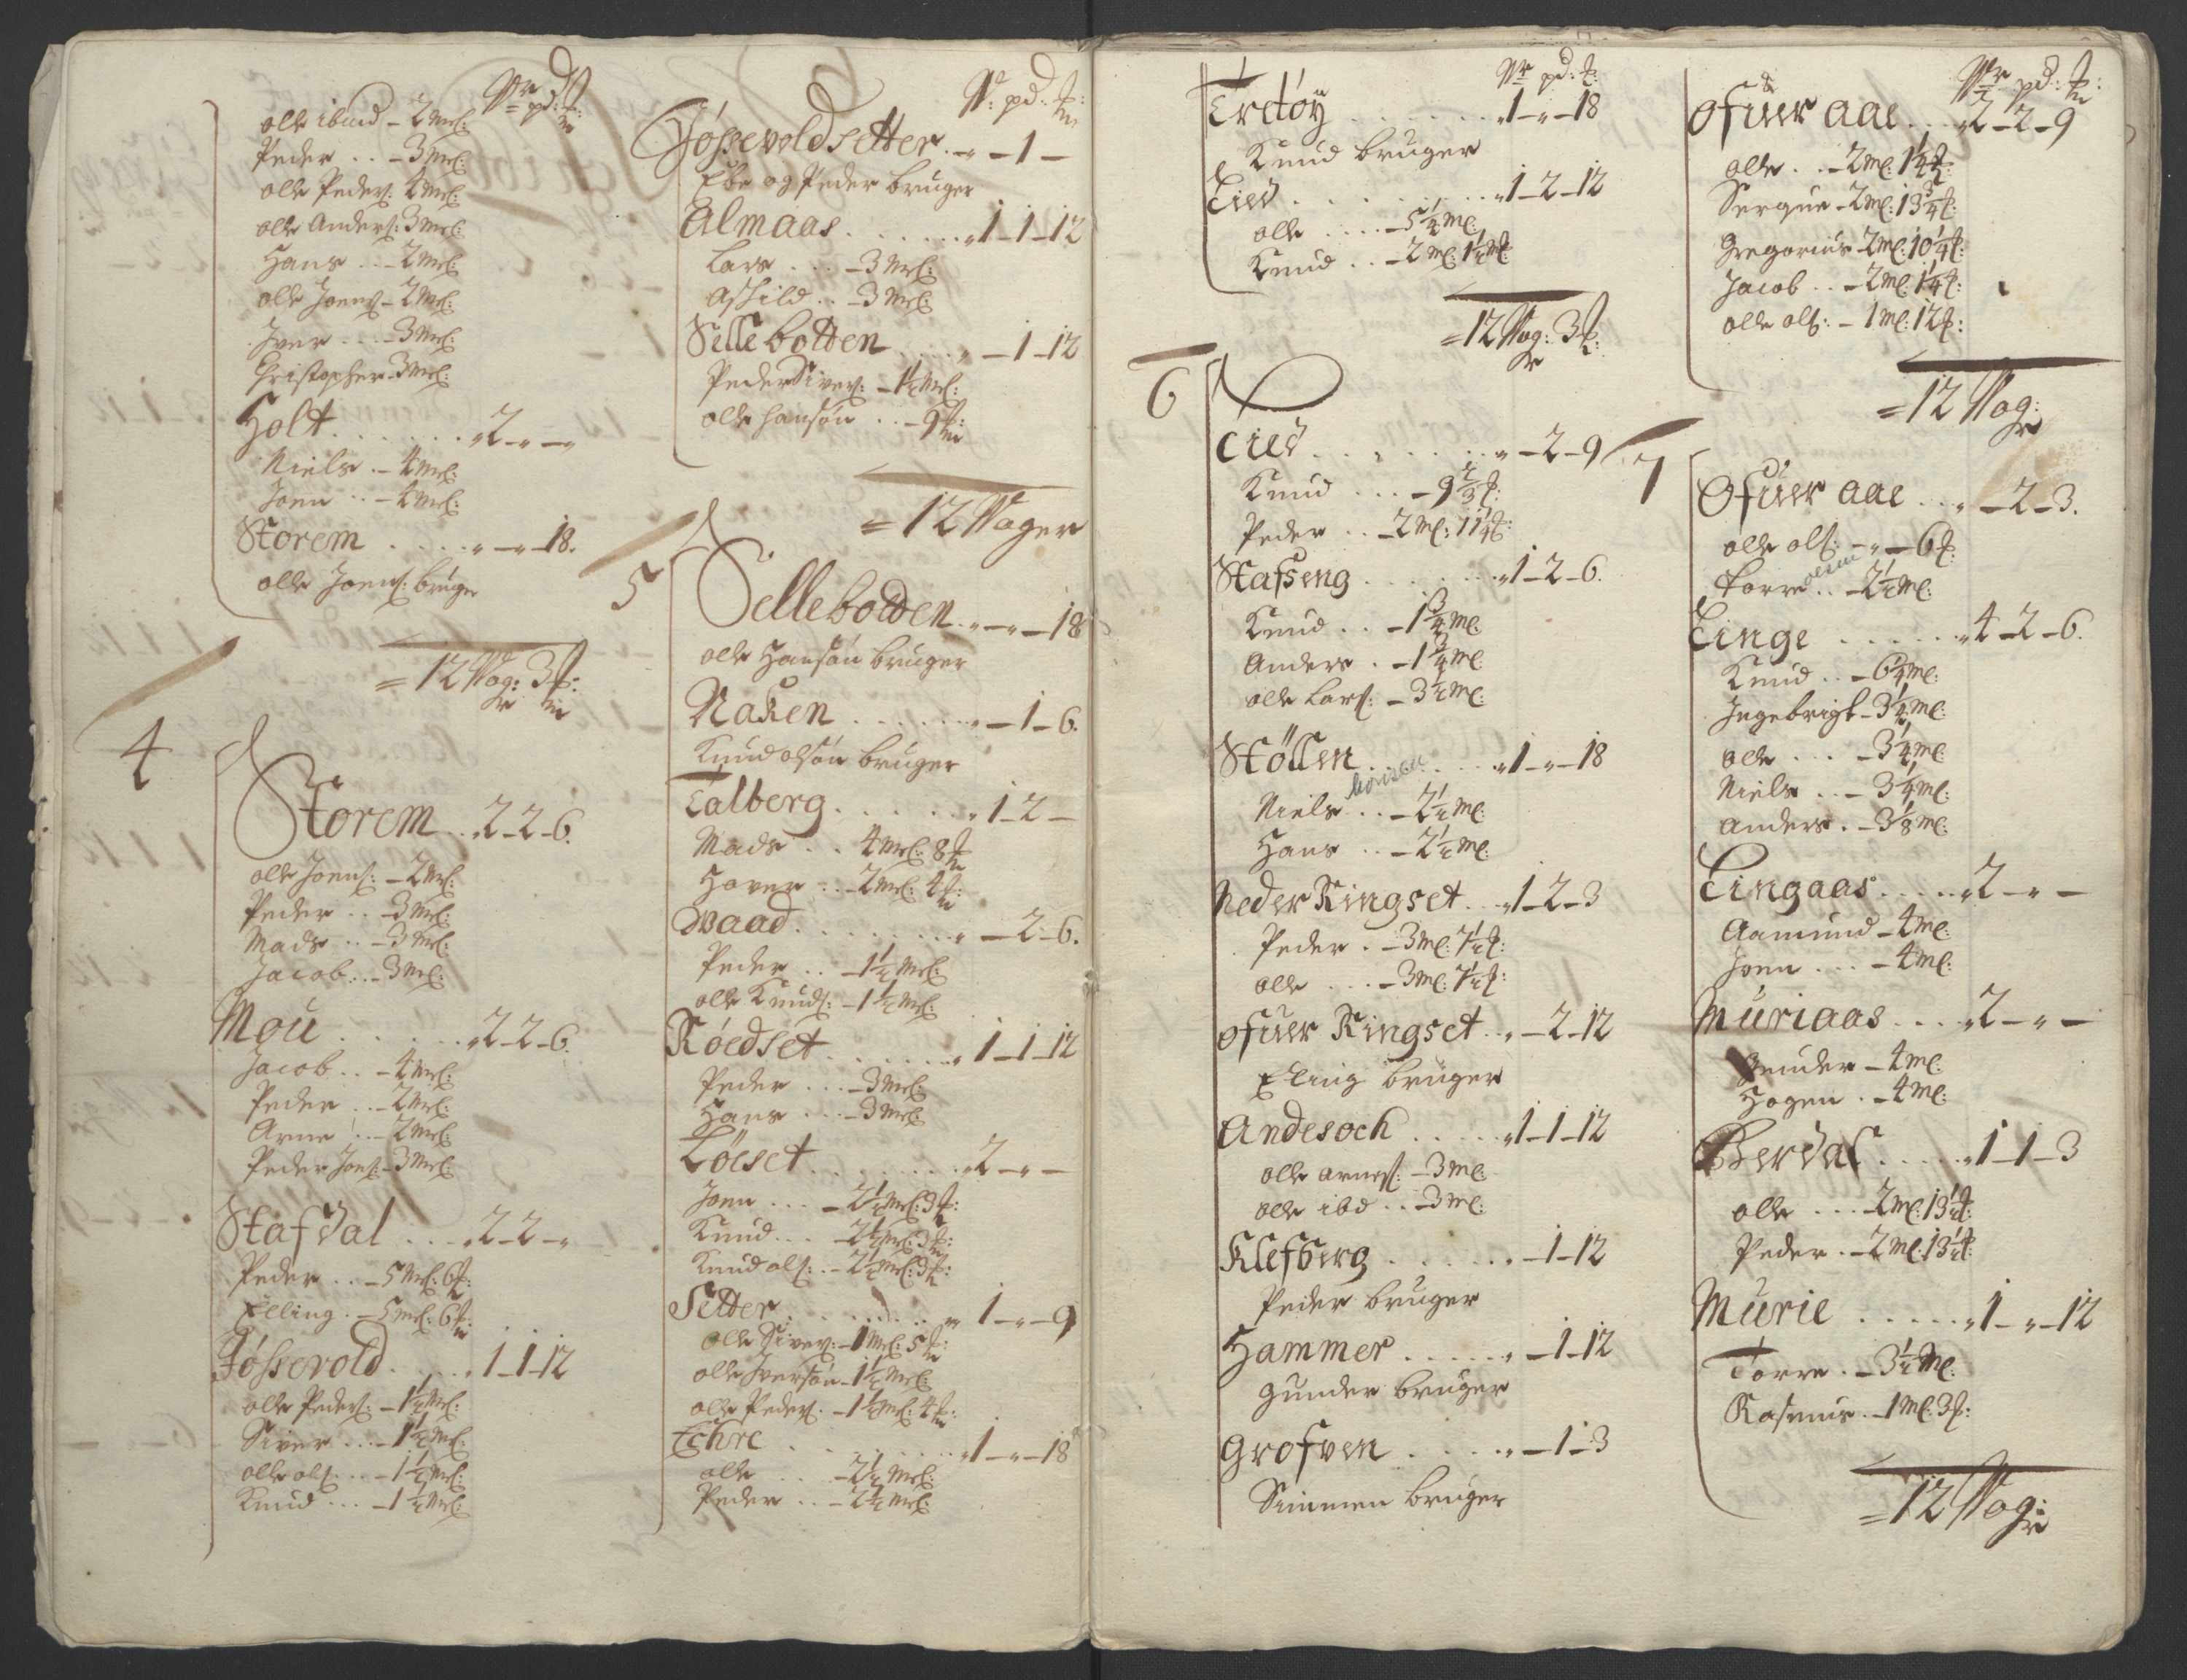 Wr pd: ℔:
olle ibnd – 2 Mrl:
Peder .. – 3 Mrl:
olle Peders: 4 Mrl:
olle Anders: 3 Mrl:
Hans .. – 2 Mrl:
olle Joens – 2 Mrl:
Iver ... – 3 Mrl:
Christopher – 3 Mrl:
Holt ...... „2 – „ – „
Niels .. – 4 Mrl:
Joen .. – 4 Mrl:
Storem .... „ – „ – 18.
olle Joens: bruger
= 12 Wog: 3 ℔:
4
Storem .. „2 – 2 – 6.
olle Joens: – 2 Mrl:
Peder .. – 3 Mrl:
Mads .. – 3 Mrl:
Jacob .. – 3 Mrl:
Mou ...... „2 – 2 – 6.
Jacob .. – 4 Mrl:
Peder .. – 2 Mrl:
Arne .. – 2 Mrl:
Peder Jons: – 3 Mrl:
Stafdal .... „2 – 2 – „
Peder .. – 5 Mrl: 6 ℔:
Elling . – 5 Mrl: 6 ℔:
Jössevold .... „1 – 1 – 12
olle Peders: – 1½ Mrl:
Siver ... – 1½ Mrl:
olle ols: .. – 1½ Mrl:
Knud ... – 1½ Mrl:
W: pd: ℔:
Jössevoldsetter . „ – 1 –
Ebe og Peder bruger
Almaas ...... „1 – 1 – 12
Lars ... – 3 Mrl:
Aschild .. – 3 Mrl:
Sillebotten .... „ – 1 – 12
Peder Sivers: – 1½ Mrl:
olle hansön .. – 9 ℔:
= 12 Woger
5
Sellebotten .. „ – „ – 18
olle Hansön bruger
Naken ...... „ – 1 – 6.
Knud olsön bruger
Talberg ...... „1 – 2 –
Mads .. 4 Mrl: 8 ℔
Haver .. – 2 Mrl: 4 ℔:
Waad ........ „ – 2 – 6.
Peder .. – 1½ Mrl:
olle Knuds: – 1½ Mrl:
Röedset ...... „1 – 1 – 12
Peder ... – 3 Mrl:
Hans ... – 3 Mrl:
Löeset ........ „2 – „ –
Joen ... – 2½ Mrl: 3 ℔:
Knud ... 2½ Mrl: 3 ℔:
Knud ols: .. – 2½ Mrl: 3 ℔:
Setter ........ „1 – „ – 9
olle Sivers: – 1 Mrl: 5 ℔:
olle Iversön – 1½ Mrl:
olle Peders: – 1½ Mrl: 4 ℔:
Echre ........ „1 – „ – 18
olle ... – 2½ Mrl:
Peder .. – 2½ Mrl:
Wr pd: ℔:
Erdöÿ ...... „1 – „ – 18
Knud bruger
Eied ........ „1 – 2 – 12
olle .... – 5¼ Ml:
Knud .. – 2 Ml: 1½ ℔
= 12 Wog: 3 ℔:
6
Eied ........ „ – 2 – 9
Knud ... – 9⅔ ℔:
Peder .. – 2 Ml: 11¼ ℔:
Stafseng ...... „1 – 2 – 6.
Knud .. – 1¾ Ml:
Anders . – 1¾ Ml:
olle Lars: – 3½ Ml:
Stöllen ...... „1 – „ – 18
Niels .. – 2½ Ml:
Hans .. – 2½ Ml:
Neder Ringset .. „1 – 2 – 3
Peder . – 3 Ml: 7½ ℔:
olle ... – 3 Ml: 7½ ℔:
ofver Ringset .. „ – 2 – 12
Eling bruger
Andesoch ..... „1 – 1 – 12
olle arnes: – 3 Ml:
olle ibd .. – 3 Ml:
Klefberg ...... – 1 – 12
Peder bruger
Hammer ..... „ – 1 – 12
Gunder bruger
Grofven ..... „ – 1 – 3
Simmen bruger
Wr pd: ℔:
ofver aae ... „2 – 2 – 9
olle .. – 2 Ml: 1¼ ℔:
Serque – 2 Ml: 13¾ ℔:
Gregorius – 2 Ml: 10¼ ℔:
Jacob .. – 2 Ml: 1¼ ℔:
olle ols: – 1 Ml: 12 ℔:
= 12 Wog:
7
Ofver aae ... „ – 2 – 3.
olle ols: – „ – 6 ℔:
Torre .. – 2½ Ml:
Einge ...... „4 – 2 – 6.
Knud .. – 6¼ Ml:
Ingebrigt – 3¼ Ml:
olle ... – 3¼ Ml:
Niels .. – 3¼ Ml:
Anders . – 3⅛ Ml:
Eingaas ..... „2 – „ –
Aamund – 4 Ml:
Joen ... – 4 Ml:
Muriaas .... „2 – „ –
Gunder – 4 Ml:
Hogen . – 4 Ml:
Berdal ..... „1 – 1 – 3
olle ... – 2 Ml: 13½ ℔:
Peder . – 2 Ml: 13½ ℔:
Murie ..... „1 – „ – 12
Torre . – 3½ Ml:
Rasmus . – 1 Ml: 3 ℔:
= 12 Wog: